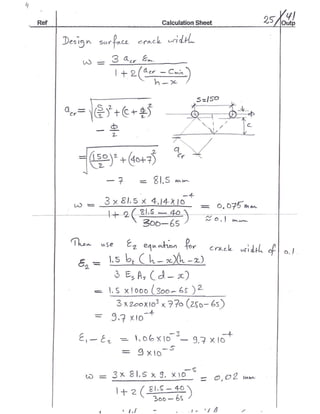 Ref Calculation Sheet 25/41 Outp
Design surface crack width
ω = 3 acr εm
1 + 2( acr - Cmin )
h - x
S=150
acr = √( (S/2)² + (c + φ/2)² ) - φ/2
φ
c
= √( (150/2)² + (40+7)² )
acr
- 7 = 81.5 mm
ω = 3 x 81.5 x 4.14 x 10⁻⁴ = 0.075 mm
1 + 2( 81.5 - 40 )
300 - 65
≈ 0.1 mm
Then use ε2 equation for crack width of 0.1
ε2 = 1.5 bt (h - x)(h - x)
3 Es As (d - x)
= 1.5 x 1000 (300 - 65)2
3 x 200x10³ x 770 (250 - 65)
= 9.7 x 10⁻⁴
ε1 - ε2 = 1.06 x 10⁻³ - 9.7 x 10⁻⁴
= 9 x 10⁻⁵
ω = 3 x 81.5 x 9. x 10⁻⁵ = 0.02 mm
1 + 2 ( 81.5 - 40 )
300 - 65